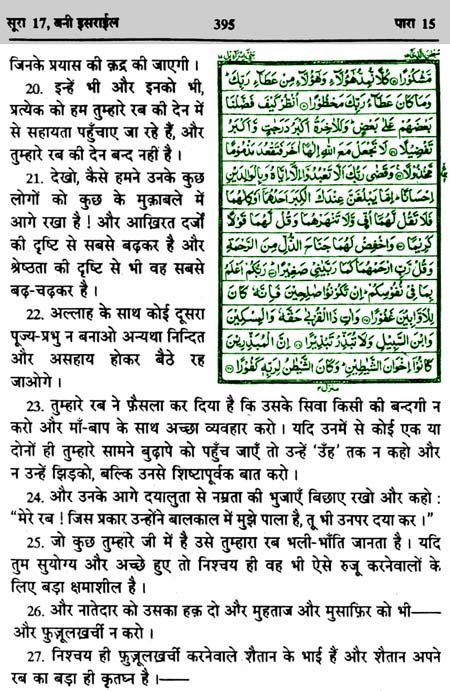 सूरा 17, बनी इसराईल 395 पारा 15
जिनके प्रयास की क़द्र की जाएगी।
20. इन्हें भी और इनको भी,
प्रत्येक को हम तुम्हारे रब की देन में
से सहायता पहुँचाए जा रहे हैं, और
तुम्हारे रब की देन बन्द नहीं है।
21. देखो, कैसे हमने उनके कुछ
लोगों को कुछ के मुक़ाबले में
आगे रखा है! और आख़िरत दर्जों
की दृष्टि से सबसे बढ़कर है और
श्रेष्ठता की दृष्टि से भी वह सबसे
बढ़-चढ़कर है।
22. अल्लाह के साथ कोई दूसरा
पूज्य-प्रभु न बनाओ अन्यथा निन्दित
और असहाय होकर बैठे रह
जाओगे।
مَّشْكُوْرًا ۝ كُلًّا نُّمِدُّ هٰٓؤُلَآءِ وَهٰٓؤُلَآءِ مِنْ عَطَآءِ رَبِّكَ
وَمَا كَانَ عَطَآءُ رَبِّكَ مَحْظُوْرًا ۝ اُنْظُرْ كَيْفَ فَضَّلْنَا
بَعْضَهُمْ عَلٰى بَعْضٍ وَلَلْاٰخِرَةُ اَكْبَرُ دَرَجٰتٍ وَّاَكْبَرُ
تَفْضِيْلًا ۝ لَا تَجْعَلْ مَعَ اللهِ اِلٰهًا اٰخَرَ فَتَقْعُدَ مَذْمُوْمًا
مَّخْذُوْلًا ۝ وَقَضٰى رَبُّكَ اَلَّا تَعْبُدُوْٓا اِلَّآ اِيَّاهُ وَبِالْوَالِدَيْنِ
اِحْسَانًا اِمَّا يَبْلُغَنَّ عِنْدَكَ الْكِبَرَ اَحَدُهُمَآ اَوْ كِلٰهُمَا
فَلَا تَقُلْ لَّهُمَآ اُفٍّ وَّلَا تَنْهَرْهُمَا وَقُلْ لَّهُمَا قَوْلًا
كَرِيْمًا ۝ وَاخْفِضْ لَهُمَا جَنَاحَ الذُّلِّ مِنَ الرَّحْمَةِ
وَقُلْ رَّبِّ ارْحَمْهُمَا كَمَا رَبَّيٰنِيْ صَغِيْرًا ۝ رَبُّكُمْ اَعْلَمُ
بِمَا فِيْ نُفُوْسِكُمْ اِنْ تَكُوْنُوْا صٰلِحِيْنَ فَاِنَّهٗ كَانَ
لِلْاَوَّابِيْنَ غَفُوْرًا ۝ وَاٰتِ ذَا الْقُرْبٰى حَقَّهٗ وَالْمِسْكِيْنَ
وَابْنَ السَّبِيْلِ وَلَا تُبَذِّرْ تَبْذِيْرًا ۝ اِنَّ الْمُبَذِّرِيْنَ
كَانُوْٓا اِخْوَانَ الشَّيٰطِيْنِ وَكَانَ الشَّيْطٰنُ لِرَبِّهٖ كَفُوْرًا ۝
23. तुम्हारे रब ने फ़ैसला कर दिया है कि उसके सिवा किसी की बन्दगी न
करो और माँ-बाप के साथ अच्छा व्यवहार करो। यदि उनमें से कोई एक या
दोनों ही तुम्हारे सामने बुढ़ापे को पहुँच जाएँ तो उन्हें 'उँह' तक न कहो और
न उन्हें झिड़को, बल्कि उनसे शिष्टापूर्वक बात करो।
24. और उनके आगे दयालुता से नम्रता की भुजाएँ बिछाए रखो और कहो :
"मेरे रब! जिस प्रकार उन्होंने बालकाल में मुझे पाला है, तू भी उनपर दया कर।"
25. जो कुछ तुम्हारे जी में है उसे तुम्हारा रब भली-भाँति जानता है। यदि
तुम सुयोग्य और अच्छे हुए तो निश्चय ही वह भी ऐसे रुजू करनेवालों के
लिए बड़ा क्षमाशील है।
26. और नातेदार को उसका हक़ दो और मुहताज और मुसाफ़िर को भी——
और फ़ुज़ूलख़र्ची न करो।
27. निश्चय ही फ़ुज़ूलख़र्ची करनेवाले शैतान के भाई हैं और शैतान अपने
रब का बड़ा ही कृतघ्न है।——